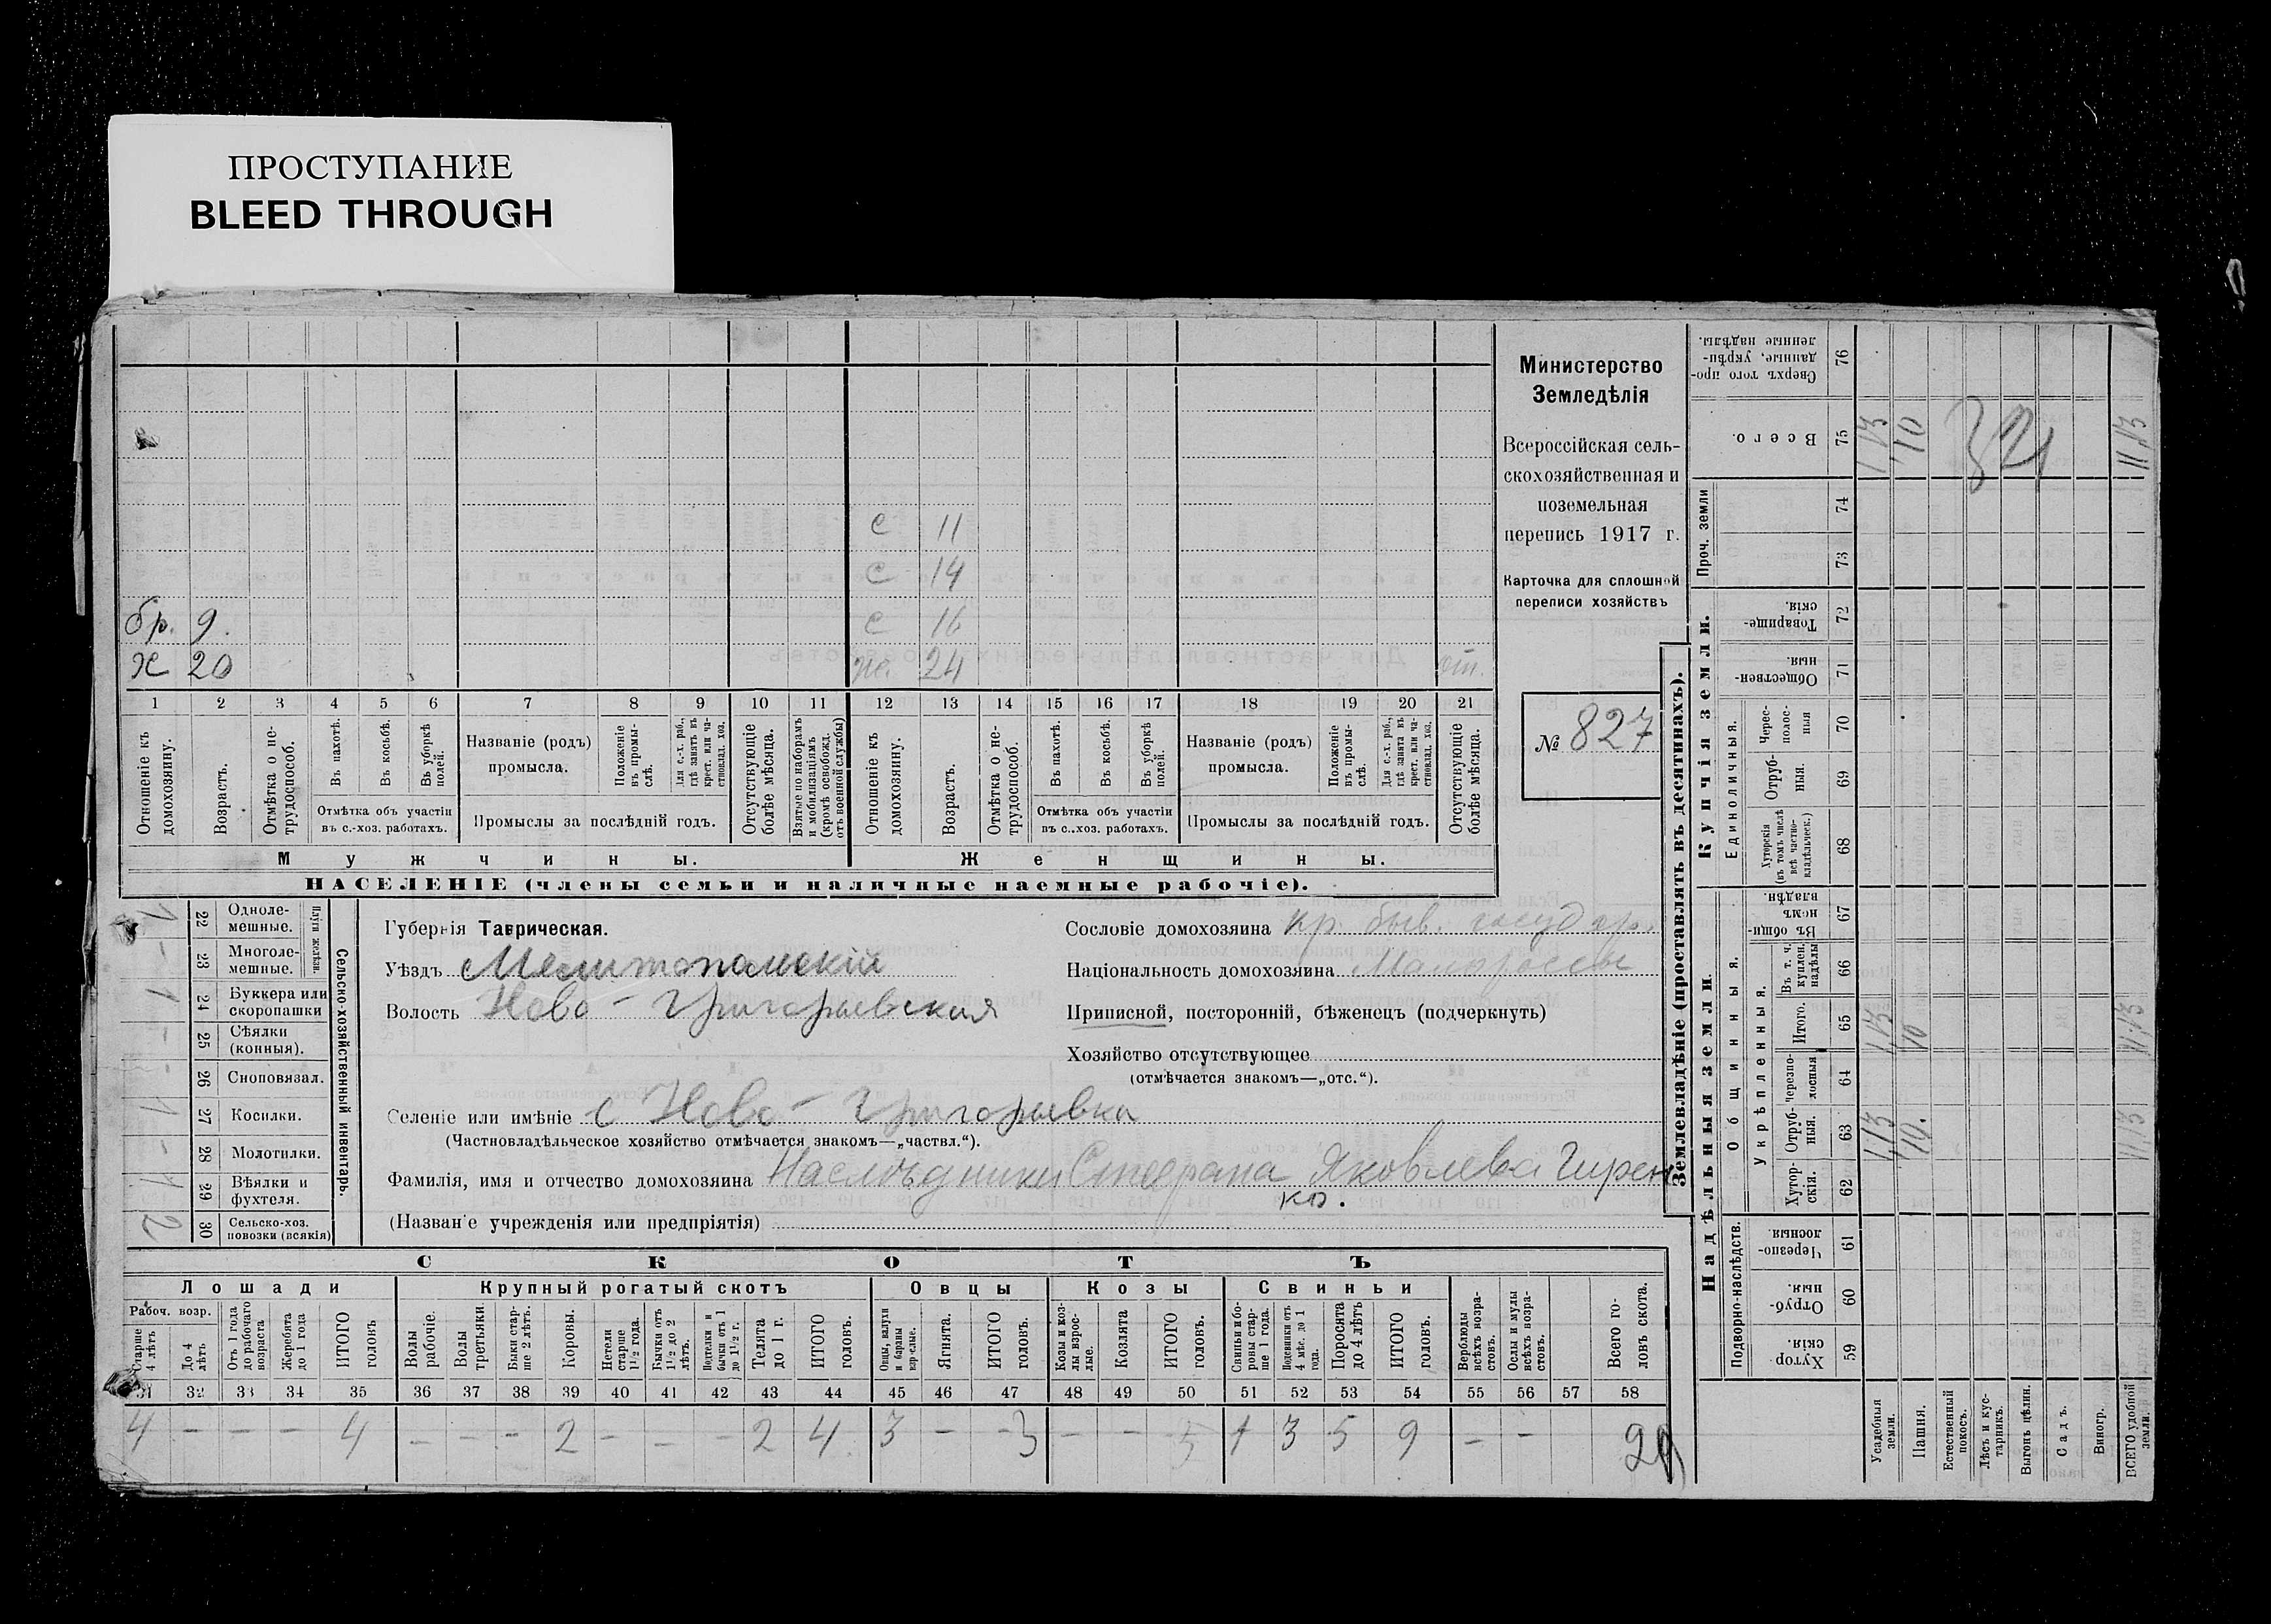 ПРОСТУПАНИЕ
BLEED THROUGH
Министерство
Земледѣлія
Всероссійская сель-
скохозяйственная и
поземельная
перепись 1917 г.
Карточка для сплошной
переписи хозяйствъ
№ 827
с 11
с 14
бр. 9. с 16
х 20 же. 24 от.
1 2 3 4 5 6 7 8 9 10 11 12 13 14 15 16 17 18 19 20 21
Отношеніе къ домохозяину.
Возрастъ.
Отмѣтка о не-трудоспособ.
Въ пахотѣ.
Въ косьбѣ.
Въ уборкѣ полей.
Отмѣтка объ участіи
въ с.-хоз. работахъ.
Названіе (родъ)
промысла.
Положеніе въ промы-слѣ.
Для с.-х. раб., гдѣ занятъ въ крест. или ча-ствовлад. хоз.
Промыслы за послѣдній годъ.
Отсутствующіе болѣе мѣсяца.
Взятые по наборамъ и мобилизаціямъ (кромѣ освобожд. отъ военной службы)
Отношеніе къ домохозяину.
Возрастъ.
Отмѣтка о не-трудоспособ.
Въ пахотѣ.
Въ косьбѣ.
Въ уборкѣ полей.
Отмѣтка объ участіи
въ с..хоз. работахъ.
Названіе (родъ)
промысла.
Положеніе въ промы-слѣ.
Для с.-х. раб., гдѣ занята въ крест. или ча-ствовлад. хоз.
Промыслы за послѣдній годъ.
Отсутствующіе болѣе мѣсяца.
Мужчины. Женщины.
НАСЕЛЕНІЕ (члены семьи и наличные наемные рабочіе).
Сельско-хозяйственный инвентарь.
Плуги желѣзн.
1 22 Одноле-мешные.
- 23 Многоле-мешные.
1 24 Буккера или скоропашки
- 25 Сѣялки (конныя).
- 26 Сноповязал.
1 27 Косилки.
- 28 Молотилки.
1 29 Вѣялки и фухтеля.
2 30 Сельско-хоз. повозки (всякія)
Губернія Таврическая.
Уѣздъ Мелитопольскій
Волость Ново-Григорьевская
Сословіе домохозяина кр. быв. государ.
Національность домохозяина Малороссы
Приписной, посторонній, бѣженецъ (подчеркнуть)
Хозяйство отсутствующее
(отмѣчается знакомъ—„отс.“).
Селеніе или имѣніе с Ново-Григорьевка
(Частновладѣльческое хозяйство отмѣчается знакомъ—„частвл.“).
Фамилія, имя и отчество домохозяина Наслѣдники Стефана Яковлева Гирен
ко.
(Названіе учрежденія или предпріятія)
СКОТЪ
Лошади Крупный рогатый скотъ Овцы Козы Свиньи
Рабоч. возр.
Старше 4 лѣтъ
До 4 лѣтъ
Отъ 1 года до рабочаго возраста
Жеребята до 1 года
ИТОГО головъ
Волы рабочіе.
Волы третьяки.
Быки стар-ше 2 лѣтъ.
Коровы.
Нетели старше 1½ года.
Бычки отъ 1½ до 2 лѣтъ.
Подтелки и бычки отъ 1 до 1½ г.
Телята до 1 г.
ИТОГО головъ.
Овцы, валухи и бараны взрослые.
Ягнята.
ИТОГО головъ.
Козы и коз-лы взрос-лые.
Козлята
ИТОГО головъ.
Свиньи и бо-ровы стар-ше 1 года.
Подсвинки отъ 4 мѣс. до 1 года.
Поросята до 4 лѣтъ
ИТОГО головъ.
Верблюды всѣхъ возра-стовъ.
Ослы и мулы всѣхъ возра-стовъ.
Всего го-ловъ скота.
31 32 33 34 35 36 37 38 39 40 41 42 43 44 45 46 47 48 49 50 51 52 53 54 55 56 57 58
4 - - - 4 - - - 2 - - - 2 4 3 - - 3 - - 1 3 5 9 - - 20
Землевладѣніе (проставлять въ десятинахъ).
Надѣльныя земли. Купчія земли.
Подворно-наслѣдств.
Общинныя.
Укрѣпленныя.
Единоличныя.
Проч. земли
Сверхъ того про-данные, укрѣп-ленные надѣлы. 76
Всего. 75
74
73
Товарище-скія. 72
Обществен-ныя. 71
Черес-полос-ныя 70
Отруб-ныя. 69
Хуторскія (въ томъ числѣ всѣ частно-владѣльческ.) 68
Въ общин-номъ владѣн. 67
Въ т. ч. куплен. надѣлы 66
Итого. 65
черезпо-лосныя 64
Отруб-ныя. 63
Хутор-скія. 62
Черезпо-лосныя. 61
Отруб-ныя. 60
Хутор-скія. 59
Усадебныя земли. 1,13 1,13 1,13
Пашня. 10. 10 10
Естественный покосъ.
Лѣсъ и кус-тарникъ.
Выгонъ цѣлин.
Садъ.
Виногр.
ВСЕГО удобной земли. 11,13 11,13 11,13